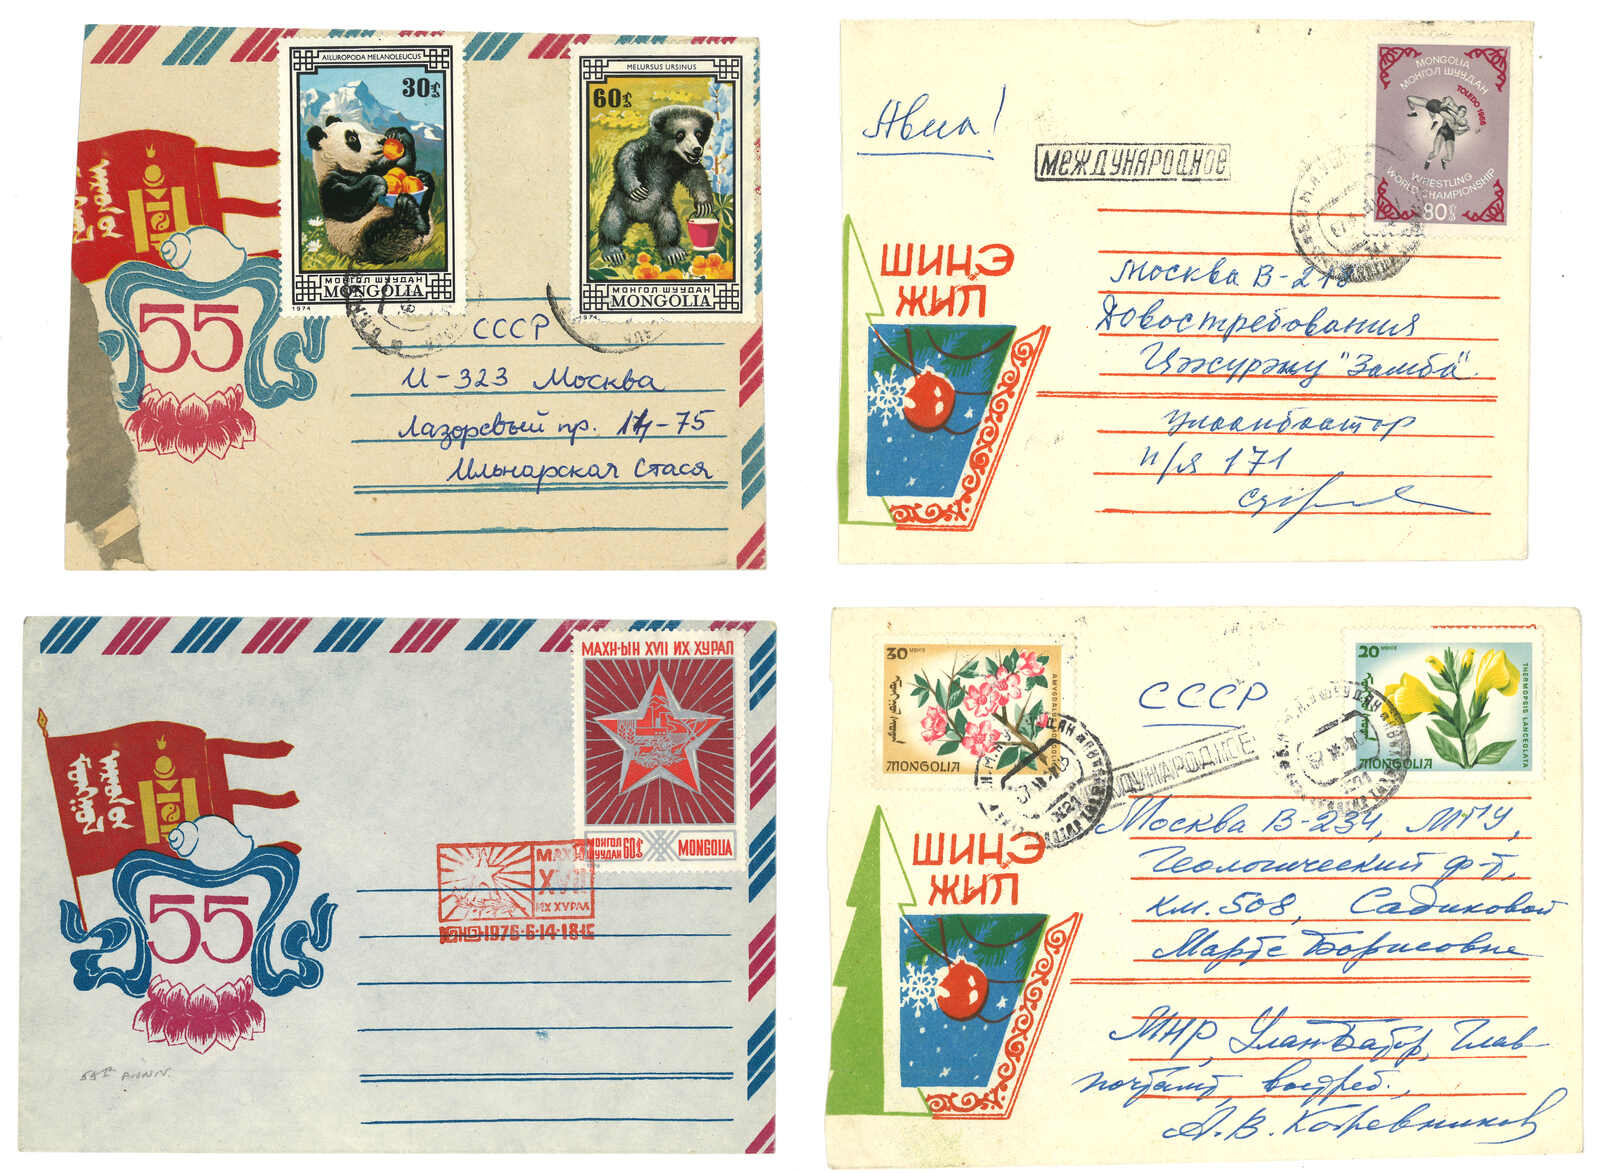 AILUROPODA MELANOLEUCUS
30
МОНГОЛ ШУУДАН
MONGOLIA
1974
MELURSUS URSINUS
60
МОНГОЛ ШУУДАН
MONGOLIA
1974
55
СССР
И-323 Москва
Лазоревый пр. 14-75
Ильнарская Стася
Авиа!
МЕЖДУНАРОДНОЕ
MONGOLIA
МОНГОЛ ШУУДАН
TOLEDO 1966
WRESTLING
WORLD CHAMPIONSHIP
80
ШИНЭ
ЖИЛ
Москва В-218
Довостребования
Цэжуржу "Замба"
Улаанбаатор
п/я 171
МАХН-ЫН XVII ИХ ХУРАЛ
МОНГОЛ
ШУУДАН
60
MONGOLIA
МАХН
XVII
ИХ ХУРАЛ
1976-6-14-18
55
55th ANNIV.
30 МӨНГӨ
AMYGDALUS MONGOLICA
MONGOLIA
20 МӨНГӨ
THERMOPSIS LANCEOLATA
MONGOLIA
СССР
МЕЖДУНАРОДНОЕ
ШИНЭ
ЖИЛ
Москва В-234, МГУ,
Геологический ф-т,
км. 508, Садиковой
Марте Борисовне
МНР, Улан-Батор, Глав-
почтамт, востреб.,
А.В. Кожевников